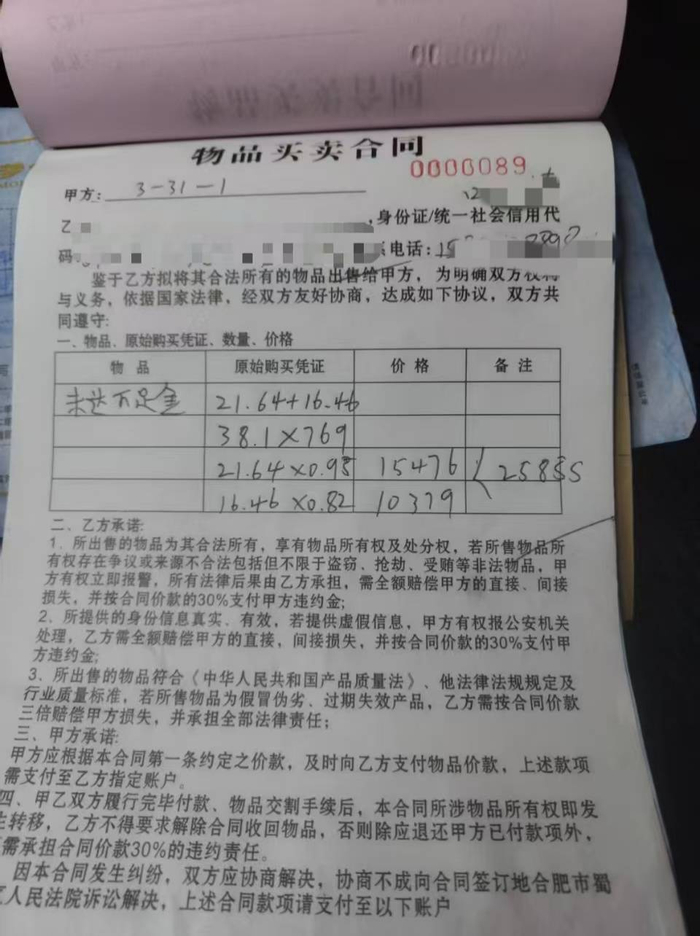 物品买卖合同
0000089
甲方: 3-31-1
乙
,身份证/统一社会信用代
码
电话: 15
鉴于乙方拟将其合法所有的物品出售给甲方，为明确双方权利
与义务，依据国家法律，经双方友好协商，达成如下协议，双方共
同遵守:
一、物品、原始购买凭证、数量、价格
物 品 原始购买凭证 价 格 备 注
未达万足金 21.64+16.46
38.1×769
21.64×0.95 15476 25855
16.46×0.82 10379
二、乙方承诺:
1、所出售的物品为其合法所有，享有物品所有权及处分权，若所售物品所
有权存在争议或来源不合法包括但不限于盗窃、抢劫、受贿等非法物品，甲
方有权立即报警，所有法律后果由乙方承担，需全额赔偿甲方的直接、间接
损失，并按合同价款的30%支付甲方违约金;
2、所提供的身份信息真实、有效，若提供虚假信息，甲方有权报公安机关
处理，乙方需全额赔偿甲方的直接，间接损失，并按合同价款的30%支付甲
方违约金;
3、所出售的物品符合《中华人民共和国产品质量法》、他法律法规规定及
行业质量标准，若所售物品为假冒伪劣、过期失效产品，乙方需按合同价款
三倍赔偿甲方损失，并承担全部法律责任;
三、甲方承诺:
甲方应根据本合同第一条约定之价款，及时向乙方支付物品价款，上述款项
需支付至乙方指定账户。
四、甲乙双方履行完毕付款、物品交割手续后，本合同所涉物品所有权即发
生转移，乙方不得要求解除合同收回物品，否则除应退还甲方已付款项外，
需承担合同价款30%的违约责任。
因本合同发生纠纷，双方应协商解决，协商不成向合同签订地合肥市蜀
人民法院诉讼解决，上述合同款项请支付至以下账户